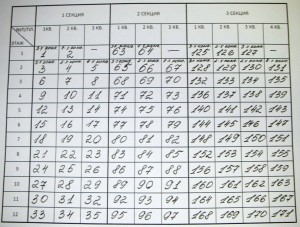 1 СЕКЦИЯ 2 СЕКЦИЯ 3 СЕКЦИЯ
ЭТАЖ 1 КВ. 2 КВ. 3 КВ. 1 КВ. 2 КВ. 3 КВ. 1 КВ. 2 КВ. 3 КВ. 4 КВ.
1 1 — 63 64 — 125 126 127 —
2 3 4 5 65 66 67 128 129 130 131
3 6 7 8 68 69 70 132 133 134 135
4 9 10 11 71 72 73 136 137 138 139
5 12 13 14 74 75 76 140 141 142 143
6 15 16 17 77 78 79 144 145 146 147
7 18 19 20 80 81 82 148 149 150 151
8 21 22 23 83 84 85 152 153 154 155
9 24 25 26 86 87 88 156 157 158 159
10 27 28 29 89 90 91 160 161 162 163
11 30 31 32 92 93 94 164 165 166 167
12 33 34 35 95 96 97 168 169 170 171